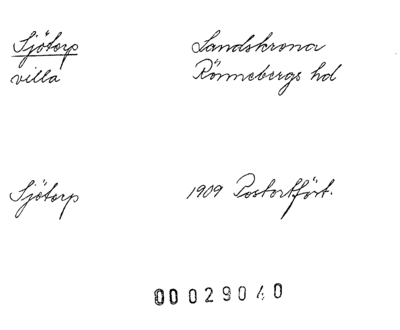 Sjötorp Landskrona
villa Rönnebergs hd
Sjötorp 1909 Postortfört.
00029040